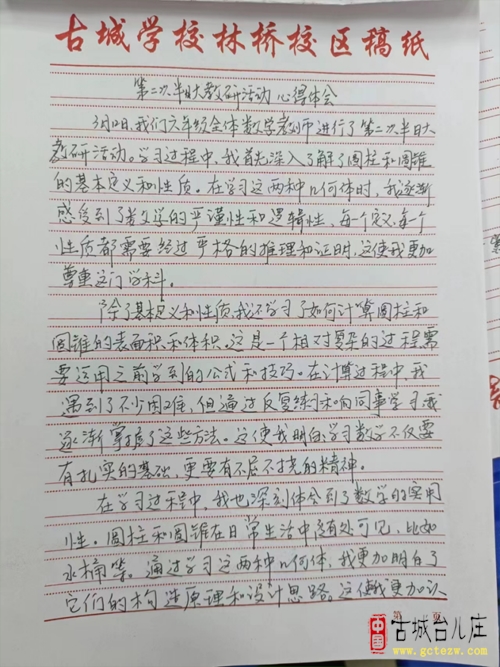 古城学校林桥校区稿纸
第二次半日大教研活动 心得体会
3月12日,我们六年级全体数学教师进行了第二次半日大
教研活动。学习过程中,我首先深入了解了圆柱和圆锥
的基本定义和性质。在学习这两种几何体时,我逐渐
感受到了数学的严谨性和逻辑性,每个定义、每个
性质都需要经过严格的推理和证明,这使我更加
尊重这门学科。
除了基本定义和性质,我还学习了如何计算圆柱和
圆锥的表面积和体积。这是一个相对复杂的过程,需
要运用之前学到的公式和技巧。在计算过程中,我
遇到了不少困难,但通过反复练习和向同事学习,我
逐渐掌握了这些方法。这使我明白,学习数学不仅要
有扎实的基础,更要有不屈不挠的精神。
在学习过程中,我也深刻体会到了数学的实用
性。圆柱和圆锥在日常生活中随处可见,比如
水桶等。通过学习这两种几何体,我更加明白了
它们的构造原理和设计思路。这使我更加认
第 页
中国 古城台儿庄
www.gctezw.com